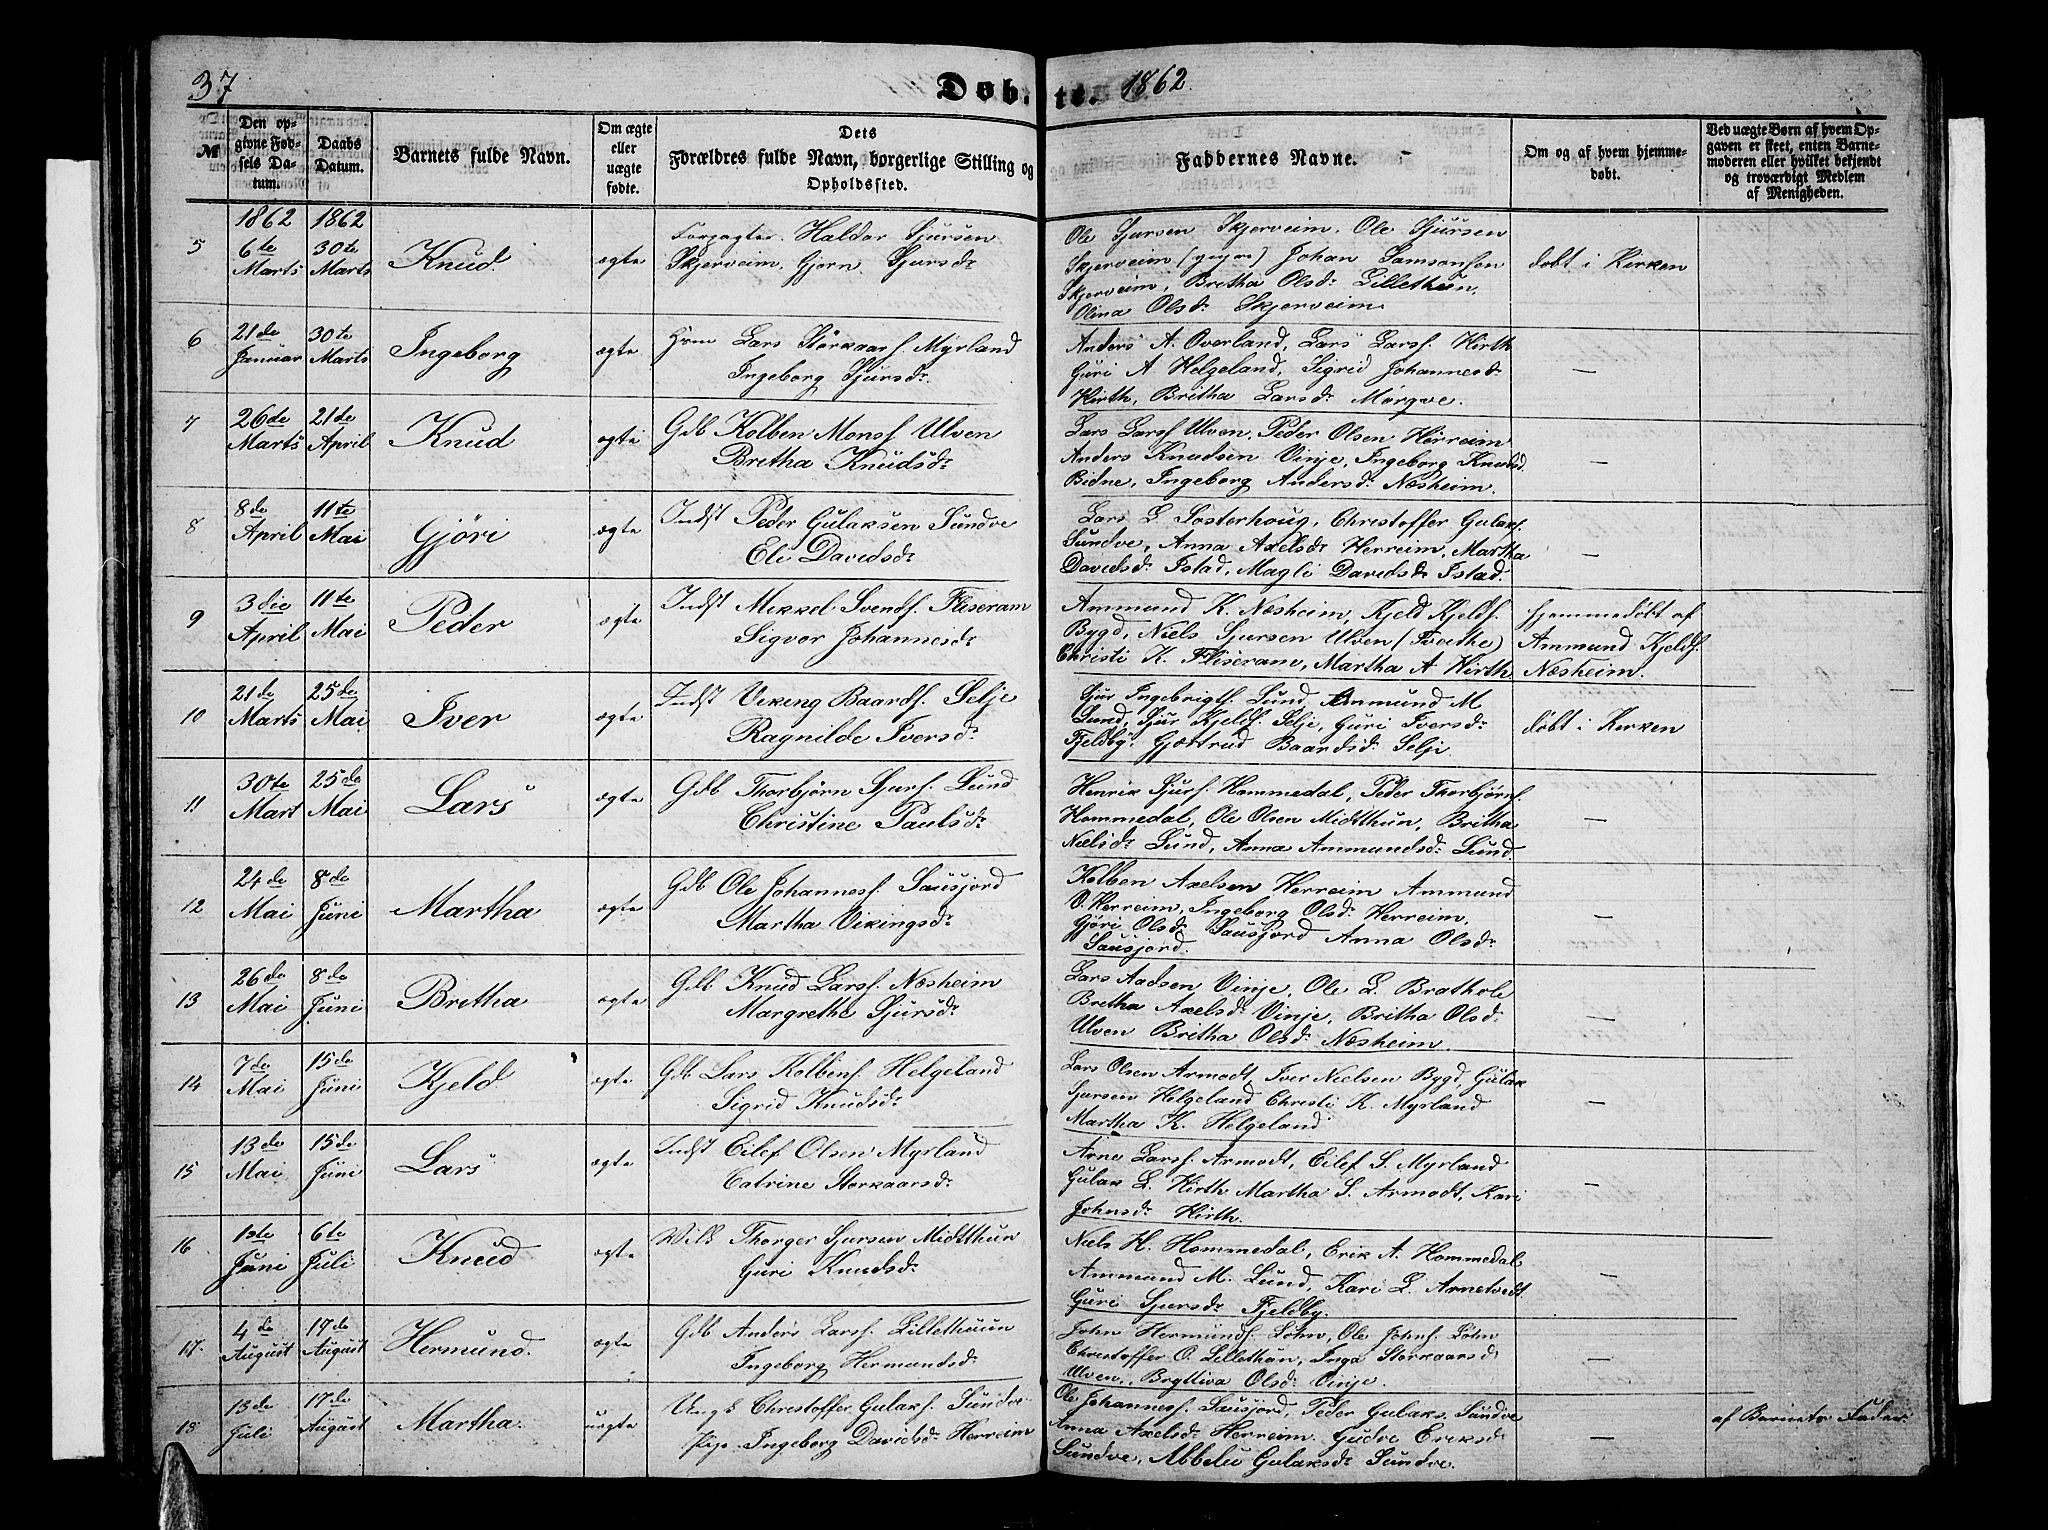 37
Døbte. 1862
№
Den op-
givne Fød-
sels Da-
tum.
Daabs
Datum.
Barnets fulde Navn.
Om ægte
eller
uægte
fødte.
Dets
Forældres fulde Navn, borgerlige Stilling og
Opholdssted.
Faddernes Navne.
Om og af hvem hjemme-
døbt.
Ved uægte Børn af hvem Op-
gaven er skeet, enten Barne-
moderen eller hvilket bekjendt
og troværdigt Medlem
af Menigheden.
5
1862
6te
Marts
1862
30te
Marts
Knud
ægte
Forpagter Haldor Sjursen
Skjerveim, Gjørn Sjursdr
Ole Sjursen Skjerveim, Ole Sjursen
Skjerveim (yngre) Johan Samsonsen
Skjerveim, Bretha Olsdr Lillethun,
Olina Olsdr Skjerveim
døbt i Kirken
6
21de
Januar
30te
Marts
Ingeborg
ægte
Hrm Lars Storkaars. Myrland
Ingeborg Sjursdr
Anders A. Overland, Lars Larsf. Hirth
Guri A Helgeland, Sigrid Johannesd
Hirth, Britha Larsdr Mørgve.
—
7
26de
Marts
21de
April
Knud
ægte
Gdb Kolben Monsf Ulven
Bretha Knudsdr
Lars Larsf Ulven, Peder Olsen Herreim
Anders Knudsen Vinje, Ingeborg Knudsd
Bidne, Ingeborg Andersdr Næsheim.
—
8
8de
April
11te
Mai
Gjøri
ægte
Indst Peder Gulaksen Sundve
Eli Davidsdr
Lars L Sosterhoug, Christoffer Gulaks.
Sundve, Anna Axelsdr Herreim, Martha
Davidsdr Istad, Magli Davidsdr Istad.
—
9
3die
April
11te
Mai
Peder
ægte
Indst Mikkel Svendsf. Fliseram
Sigvor Johannesdr
Ammund K. Næsheim, Kjeld Kjeldf.
Bygd, Niels Sjursen Ulven (Tveithe)
Christi K. Fliseram, Martha A Hirth
hjemmedøbt af
Ammund Kjeldf.
Næsheim.
10
21de
Marts
25de
Mai
Iver
ægte
Indst Viking Baardsf. Selje
Ragnilde Iversdr
Sjur Ingebrigtf. Lund, Ammund M
Lund, Sjur Kjeldf. Selje, Guri Iversdr
Fjeldby, Gjøttrud Baardsdr Selje
døbt i Kirken
11
30te
Mart
25de
Mai
Lars
ægte
Gdb Thorbjørn Sjurf. Lund
Christine Paulsdr
Henrik Sjurf. Hommedal, Peder Thorbjørnf.
Hommedal, Ole Olsen Midtthun, Britha
Nielsdr Lund, Anna Ammundsdr Lund
—
12
24de
Mai
8de
Juni
Martha
ægte
Gdb Ole Johannesf. Sausjord
Martha Vikingsdr
Kolben Axelsen Herreim Ammund
O. Herreim, Ingeborg Olsdr Herreim,
Gjøri Olsdr Sausjord Anna Olsdr
Sausjord
—
13
26de
Mai
8de
Juni
Bretha
ægte
Gdb Knud Larsf. Næsheim
Margrethe Sjursdr
Lars Aadsen Vinje, Ole L. Brathole
Bretha Axelsdr Vinje, Britha Olsd.
Ulven Britha Olsdr Næsheim.
—
14
7de
Mai
15de
Juni
Kjeld
ægte
Gdb Lars Kolbensf. Helgeland
Sigrid Knudsdr
Lars Olsen Armodt, Iver Nielsen Bygd, Gulak
Sjursen Helgeland Christi K. Myrland
Martha K. Helgeland
—
15
13de
Mai
15de
Juni
Lars
ægte
Indst Eilef Olsen Myrland
Catrine Storkaarsdr
Arne Larsf. Armodt, Eilef S. Myrland
Gulak L. Hirth Martha S. Armodt, Kari
Johnsdr Hirth.
—
16
1ste
Juni
6te
Juli
Knud
ægte
Thorger Sjursen Midtthun
Guri Knudsdr
Niels H. Hommedal, Erik A. Hommedal
Ammund M. Lund, Kari L. Arnetvedt
Guri Sjursdr Fjeldby.
—
17.
4de
August
17de
August
Hermund.
ægte
Gdb Anders Larsf. Lillethuun
Ingeborg Hermundsdr
John Hermundsf. Løhn, Ole Johnsf. Løhn
Christoffer O. Lillethun, Inga Storkaarsdr
Ulven, Bryttiva Olsdr Vinje.
—
18
13de
Juli
17de
August
Martha.
uægte
Ungk Christoffer Gulaksf. Sundve
Pige Ingeborg Davidsdr Herreim
Ole Johannesf Sausjord, Peder Gulaks. Sundve
Anna Axelsdr Herreim. Gudve Eriksdr
Sundve, Abbelu Gulaksdr Sundve.
—
af Barnets Fader